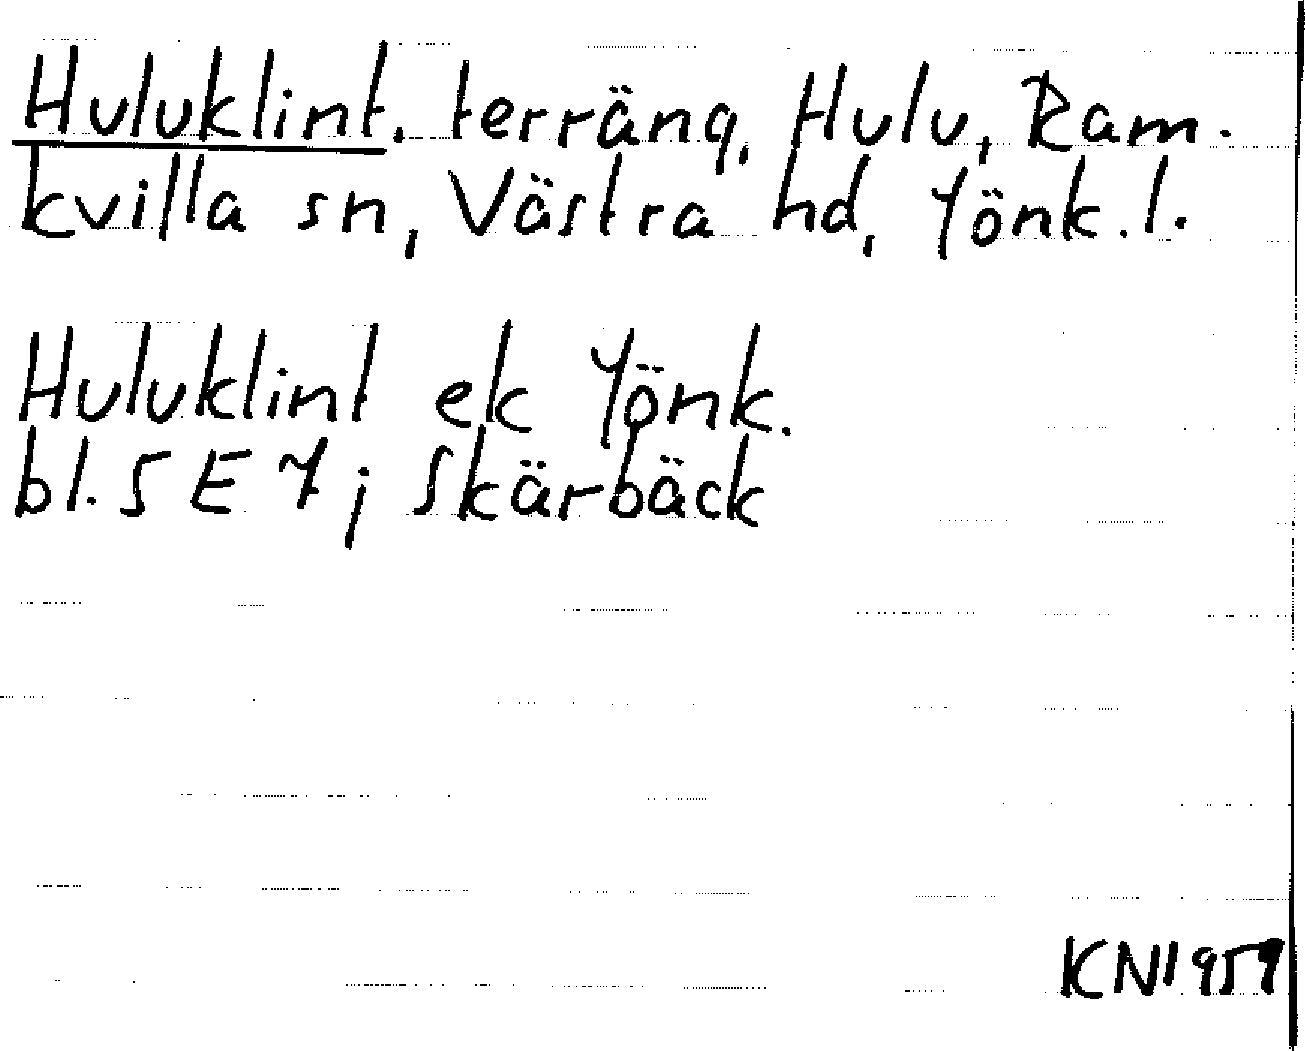 Huluklint. terräng, Hulu, Ram-
kvilla sn, Västra hd, Jönk.l.
Huluklint ek Jönk.
bl. 5 E 7 ; Skärbäck
KN 1959